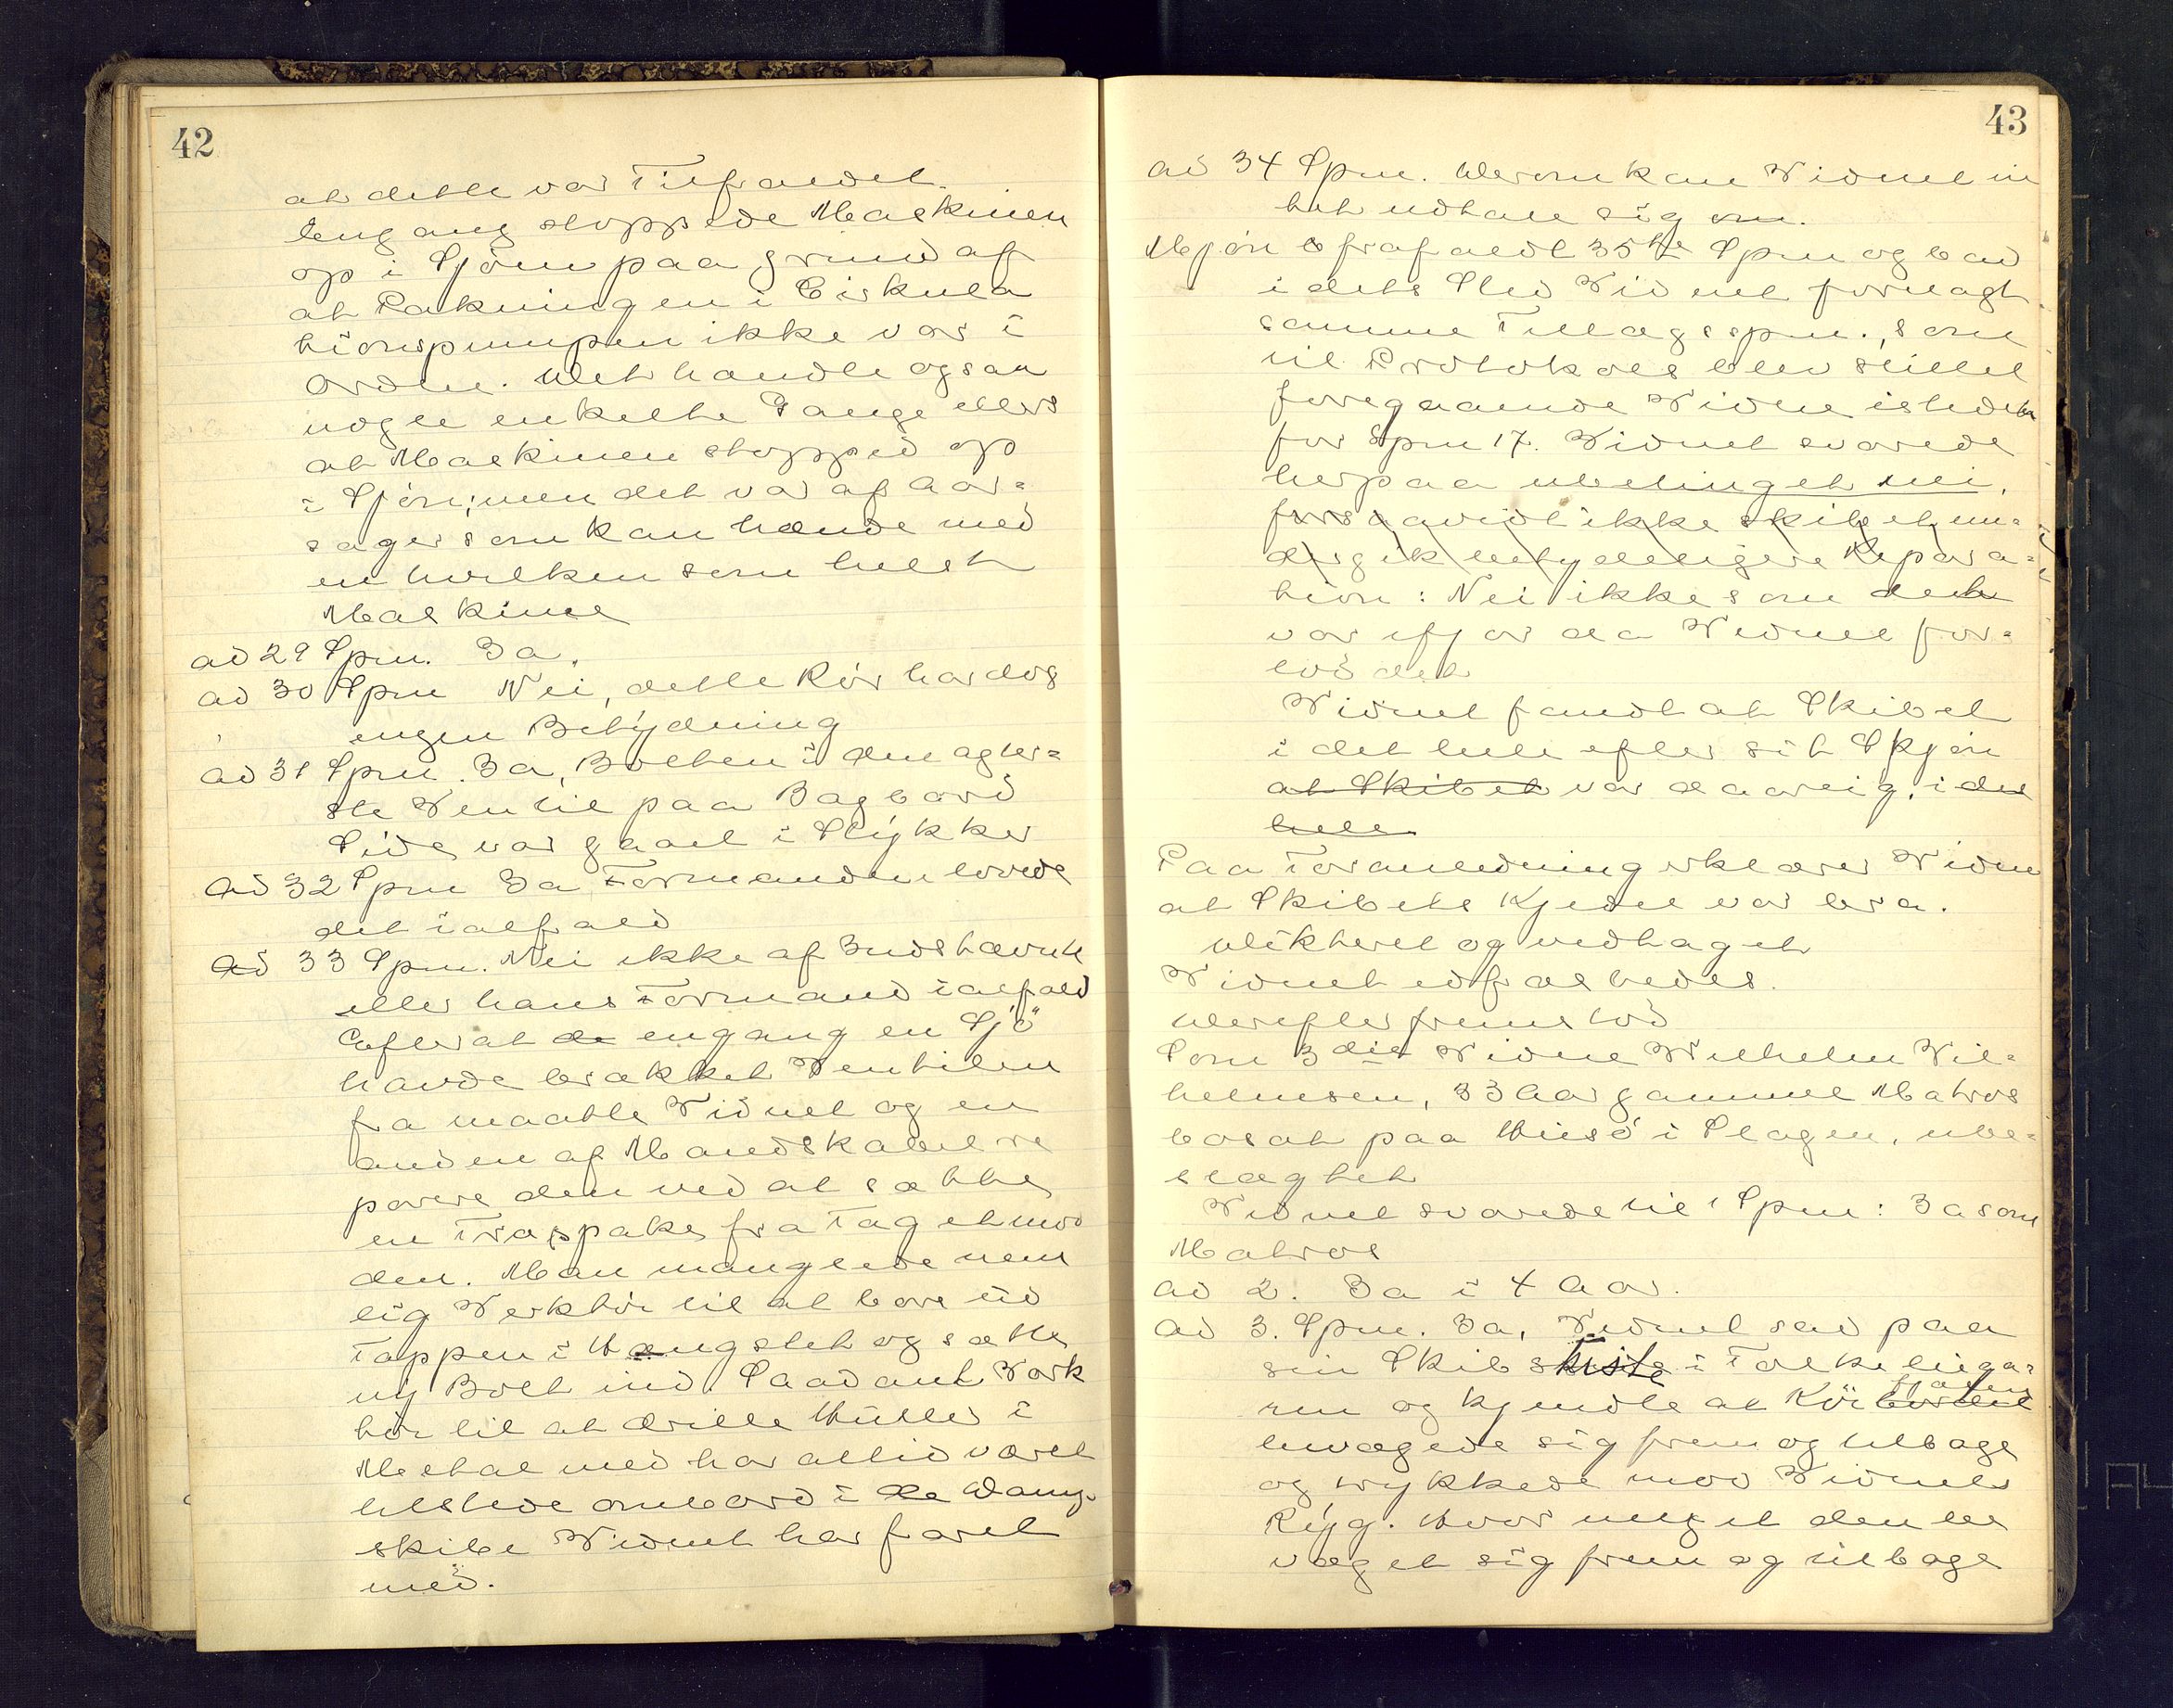 42
at dette var Tilfældet.
Engang stoppede Maskinen
op i Sjöen paa grund af
at Pakningen i Cirkula
tionspumpen ikke var i
Orden. Det hændte ogsaa
nogle enkelte Gange ellers
at Maskinen stopped op
i Sjöen; men det var af Aar=
sager som kan hænde med
en hvilken som helst
Maskine
ad 29 Spm. Ja.
ad 30 Spm Nei, dette Rör har dog
ingen Betydning
ad 31 Spm. Ja, Bolten i den agter=
ste Ventil paa Bagbord
Side var gaaet i Stykker
Ad 32 Spm Ja Formanden lovede
det ialfald
Ad 33 Spm. Nei ikke af Indstævnte
eller hans Formand ialfald
Efter at de engang en Sjö
havde brækket Ventilen
fra maatte Vidnet og en
anden af Mandskabet re
parere den ved at sætte
en Træspake fra Taget mod
den. Man manglede nem
lig Verktöi til at bore ud
Tappen i Hængslet og sætte
ny Bolt ind. Saadant Værk
töi til at drille Huller i
Metal med har altid været
tilstede ombord i de Damp=
skibe Vidnet har faret
med.
43
ad 34 Spm. Derom kan Vidnet in
tet udtale sig om.
Mjön frafaldt 35te Spm og bad
i dets Sted Vidnet forelagt
samme Tillægsspm., som
til Protokols blev stillet
foregaaende Vidne istedet
for Spm 17. Vidnet svarede
herpaa ubetinget nei,
forsaavidt ikke skibet un=
dergik betydeligere Repara=
tion: Nei ikke som det
var ifjor da Vidnet for=
lod det
Vidnet fandt at Skibet
i det hele efter sit Skjön
at Skibet var daarlig. i det
hele
Paa Foranledning erklærer Vidnet
at Skibets Kjedel var bra.
Dikteret og vedtaget
Vidnet
Derefter fremstod
Som 3die Vidne Wilhelm Vil=
helmsen, 33 Aar gammel Matros
bosat paa Husö i Slagen, ube=
slægtet
Vidnet svarede til 1 Spm: Ja som
Matros
ad 2. Ja i 4 Aar.
ad 3. Spm. Ja, Vidnet sad paa
sin Skibskiste i Folkeluga=
ren og kjendte at Köiebordet
bevægede sig frem og tilbage
og rykkede mod Vidnets
Ryg. Hvor meget den be
væget sig frem og tilbage